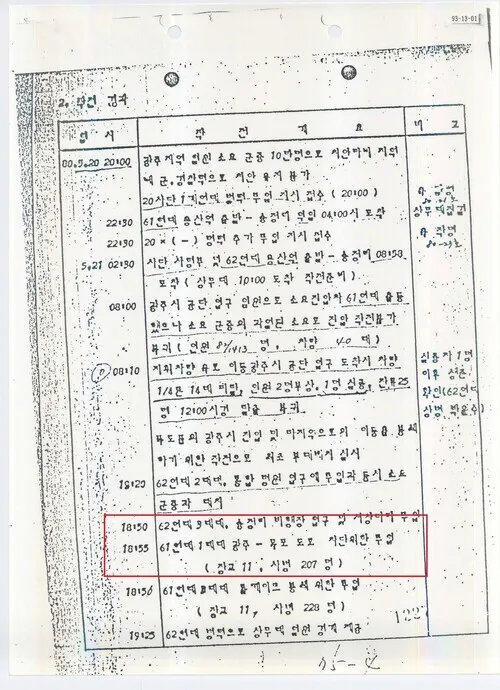 93-13-01
2. 작전 경과
일 시 작 전 개 요 비 고
80.5.20 20:00 광주지역 일원 소요 군중 10만명으로 치안마비 지역
내 군,경찰력으로 치안 유지 불가
20사단 1개연대 병력 투입 지시 접수 (20:00)
22:30 61연대 용산역 출발 - 송정리 익일 04:00시 도착
22:30 20× (-) 병력 추가 투입 지시 접수
5.21 02:30 사단 사령부 및 62연대 용산역 출발 - 송정리 08:58
도착 (상무대 10:00 도착 작전준비)
08:00 광주시 공단 입구 일원으로 소요진압차 61연대 출동
했으나 소요 군중의 소요로 진압 작전불가
복귀 ( 인원 82/1413 명, 차량 40 대 )
08:10 지휘차량 육로 이동광주시 공단 입구 도착시 차량
1/4톤 14대 피탈, 인원 2명부상, 1명 실종, 잔류25
명 12:00시경 탈출 복귀
실종자 1명
이후
확인(62연대
상병 )
폭도들의 광주시 진입 및 타지역으로의 이동을 봉쇄
하기 위한 작전으로 최초 부대배치 실시
62연대 2대대, 통합 병원 입구에 투입과 동시 소요
군중과 대치
18:50 62연대 3대대, 송정리 비행장 입구 및 투입
18:55 61연대 1대대 광주 - 목포 도로 차단위한 투입
( 장교 11, 사병 207 명 )
18:50 61연대 대대 톨게이트 봉쇄 위한 투입
( 장교 11, 사병 228 명 )
19:25 62연대 병력으로 상무대 일원 경계 제공
122